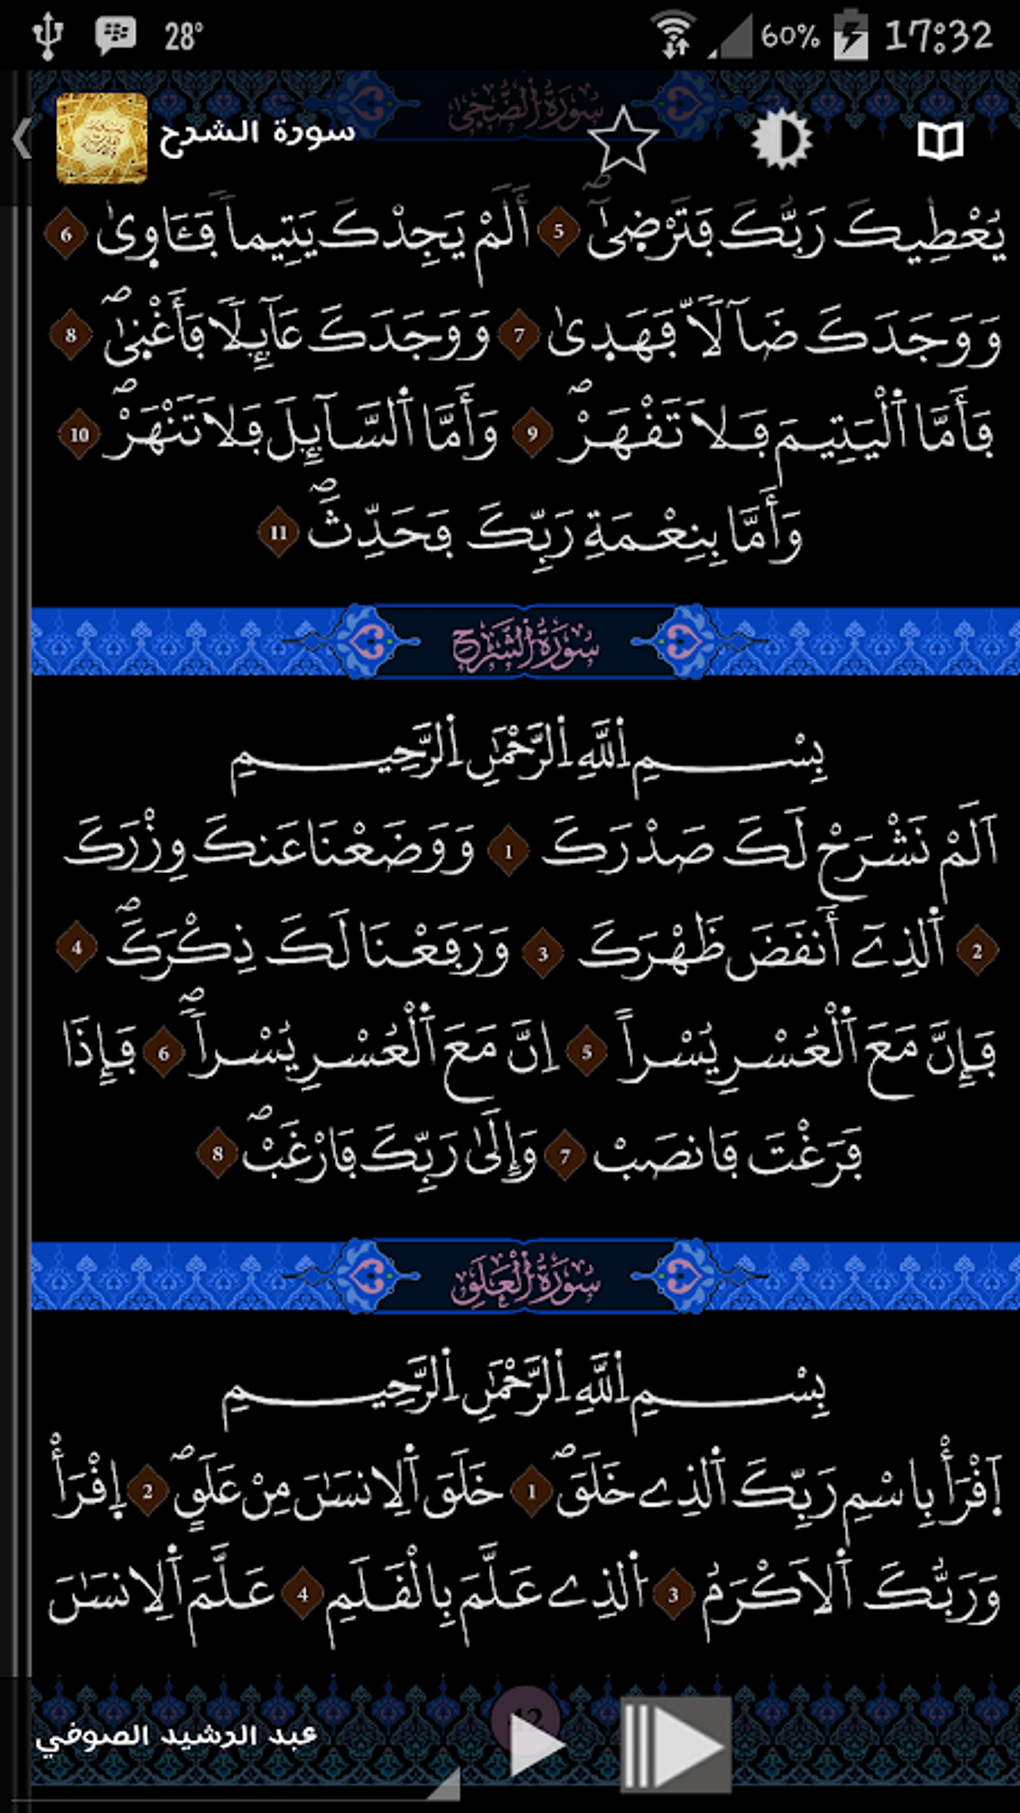 28°
60% 17:32
سورة الشرح
سُورَةُ الضُّحَىٰ
يُعْطِيكَ رَبُّكَ فَتَرْضِىٰٓ 5 أَلَمْ يَجِدْكَ يَتِيماً فَـَٔاوِىٰ 6
وَوَجَدَكَ ضَآلّاً فَهَدِىٰ 7 وَوَجَدَكَ عَآئِلًا فَأَغْنِىٰ 8
فَأَمَّا اَ۬لْيَتِيمَ فَلَا تَقْهَرْ 9 وَأَمَّا اَ۬لسَّآئِلَ فَلَا تَنْهَرْ 10
وَأَمَّا بِنِعْمَةِ رَبِّكَ فَحَدِّثْ 11
سُورَةُ الشَّرْحِ
بِسْمِ اِ۬للَّهِ اِ۬لرَّحْمَٰنِ اِ۬لرَّحِيمِ
اَلَمْ نَشْرَحْ لَكَ صَدْرَكَ 1 وَوَضَعْنَا عَنكَ وِزْرَكَ
2 اَ۬لذِےٓ أَنقَضَ ظَهْرَكَ 3 وَرَفَعْنَا لَكَ ذِكْرَكَ 4
فَإِنَّ مَعَ اَ۬لْعُسْرِ يُسْراً 5 اِنَّ مَعَ اَ۬لْعُسْرِ يُسْراً 6 فَإِذَا
فَرَغْتَ فَانصَبْ 7 وَإِلَىٰ رَبِّكَ فَارْغَبْ 8
سُورَةُ الْعَلَقِ
بِسْمِ اِ۬للَّهِ اِ۬لرَّحْمَٰنِ اِ۬لرَّحِيمِ
اِ۪قْرَأْ بِاسْمِ رَبِّكَ اَ۬لذِے خَلَقَ 1 خَلَقَ اَ۬لِانسَٰنَ مِنْ عَلَقٍ 2 اِ۪قْرَأْ
وَرَبُّكَ اَ۬لَاكْرَمُ 3 اَ۬لذِے عَلَّمَ بِالْقَلَمِ 4 عَلَّمَ اَ۬لِانسَٰنَ
عبد الرشيد الصوفي